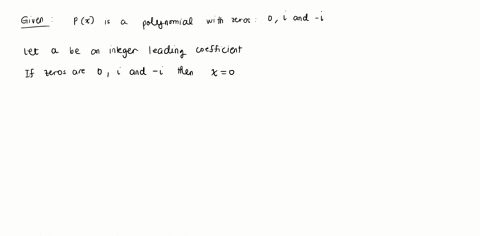 Given : P(x) is a polynomial with zeros: 0, i and -i
Let a be an integer leading coefficient
If zeros are 0, i and -i then x=0